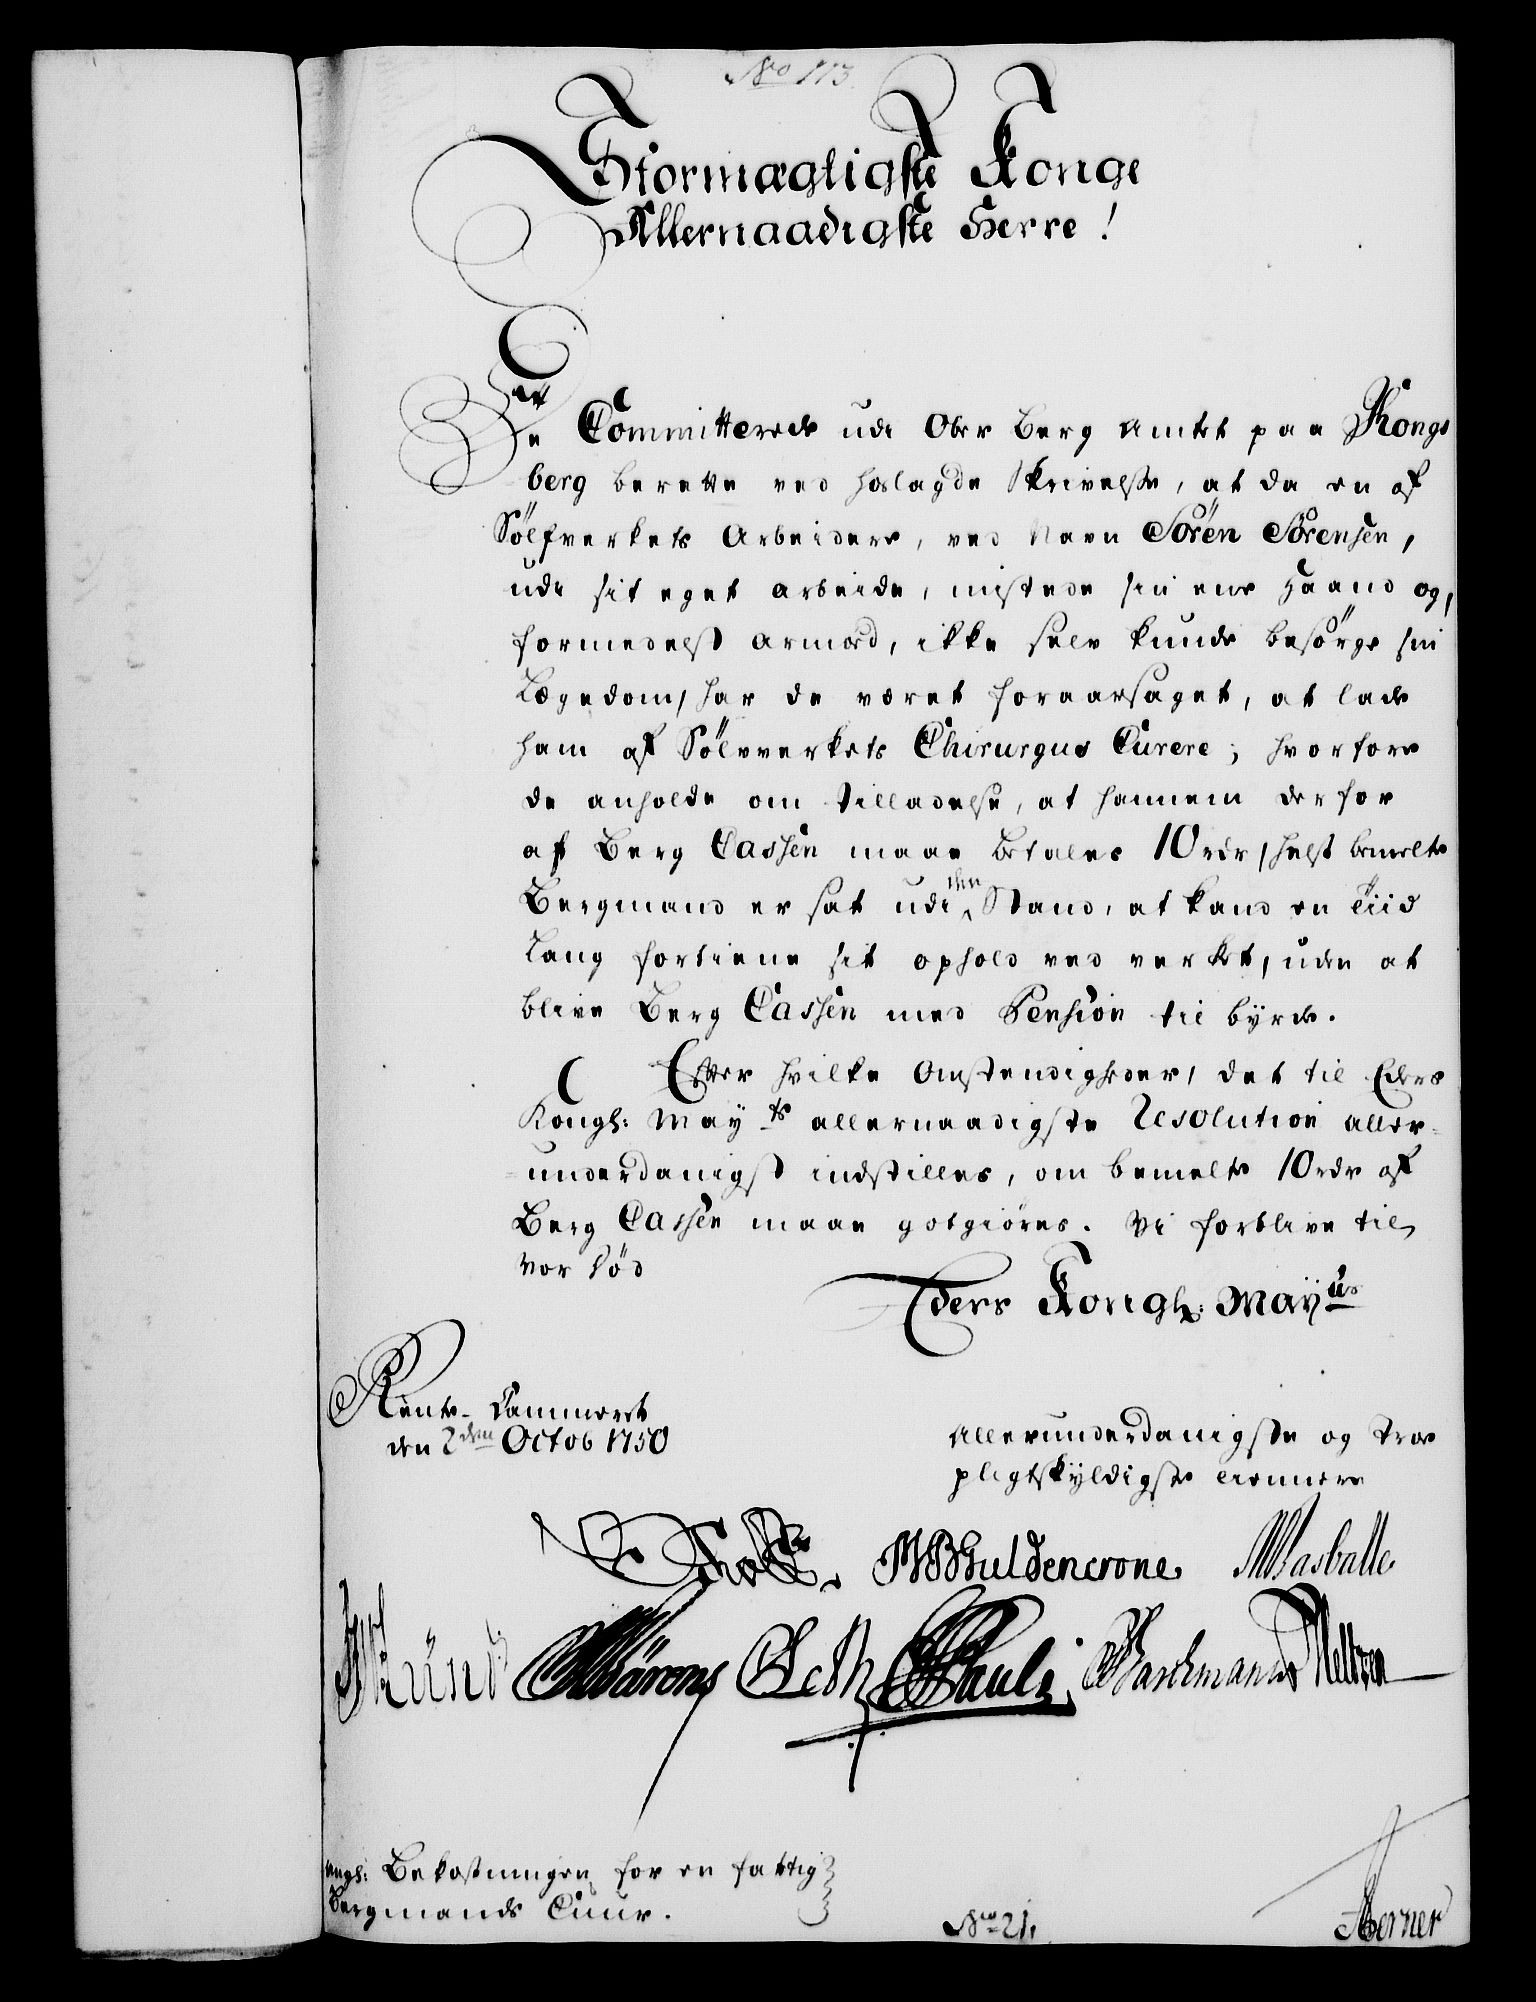 No 113.
Stormægtigste Konge
Allernaadigste Herre!
De Committerede udi Ober Berg Amtet paa Kongs
berg berette ved hoslagde Skrivelse, at da en af
Sölfverkets Arbeidere, ved Navn Sören Sörensen,
udi sit eget arbeide, mistede sin ene Haand og,
formedelst armod, ikke selv kunde besörge sin
Lægedom, har de været foraarsaget, at lade
ham af Sölvverkets Chirurgus Curere; hvorfore
de anholde om tilladelse, at hannem derfor
af Berg Cassen maae betales 10 rdr, helst bemelte
Bergmand er sat udi den Stand, at kand en Tiid
lang fortiene sit ophold ved verket, uden at
blive Berg Cassen med Pension til byrde.
Efter hvilke Omstendigheder, det til Eders
Kongl: May.ts allernaadigste Resolution aller-
underdanigst indstilles, om bemelte 10 rdr af
Berg Cassen maae gotgiöres. Vi forblive til
vor Död
Eders Kongl: May.ts
Rente-Cammeret
den 2den Octob 1750
Allerunderdanigste og Troe
pligtskyldigste tienere
Holst. MBGuldencrone. Masballe
Bärens Leth Pauli Barchmann Neltzen
angl: Bekostningen for en fattig
Bergmands Cuur.
No 21.
Aerner